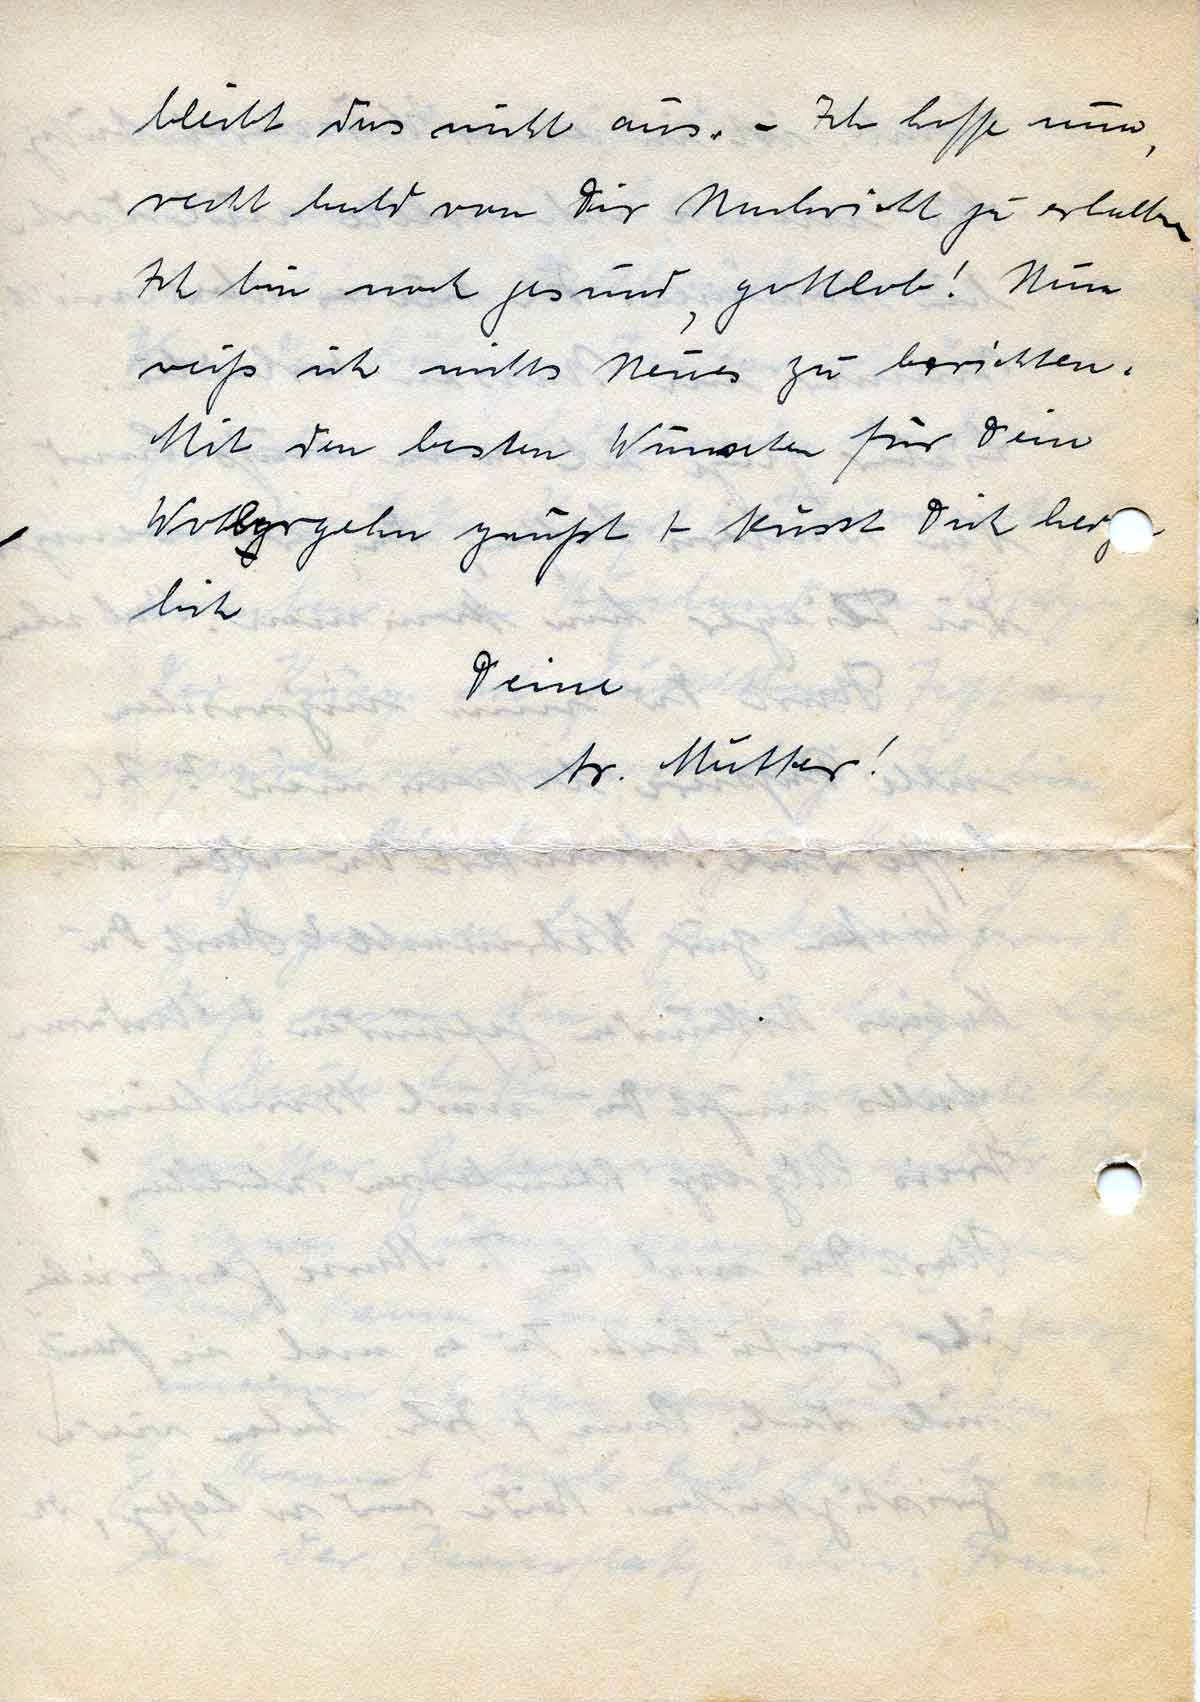 bleibt das nicht aus. - Ich hoffe nun,
recht bald von Dir Nachricht zu erhalten
Ich bin noch gesund, gottlob! Nun
weiß ich nichts Neues zu berichten.
Mit den besten Wünschen für Dein
Wohlergehn grüßt + küsst Dich herz
lich
Deine
tr. Mutter!